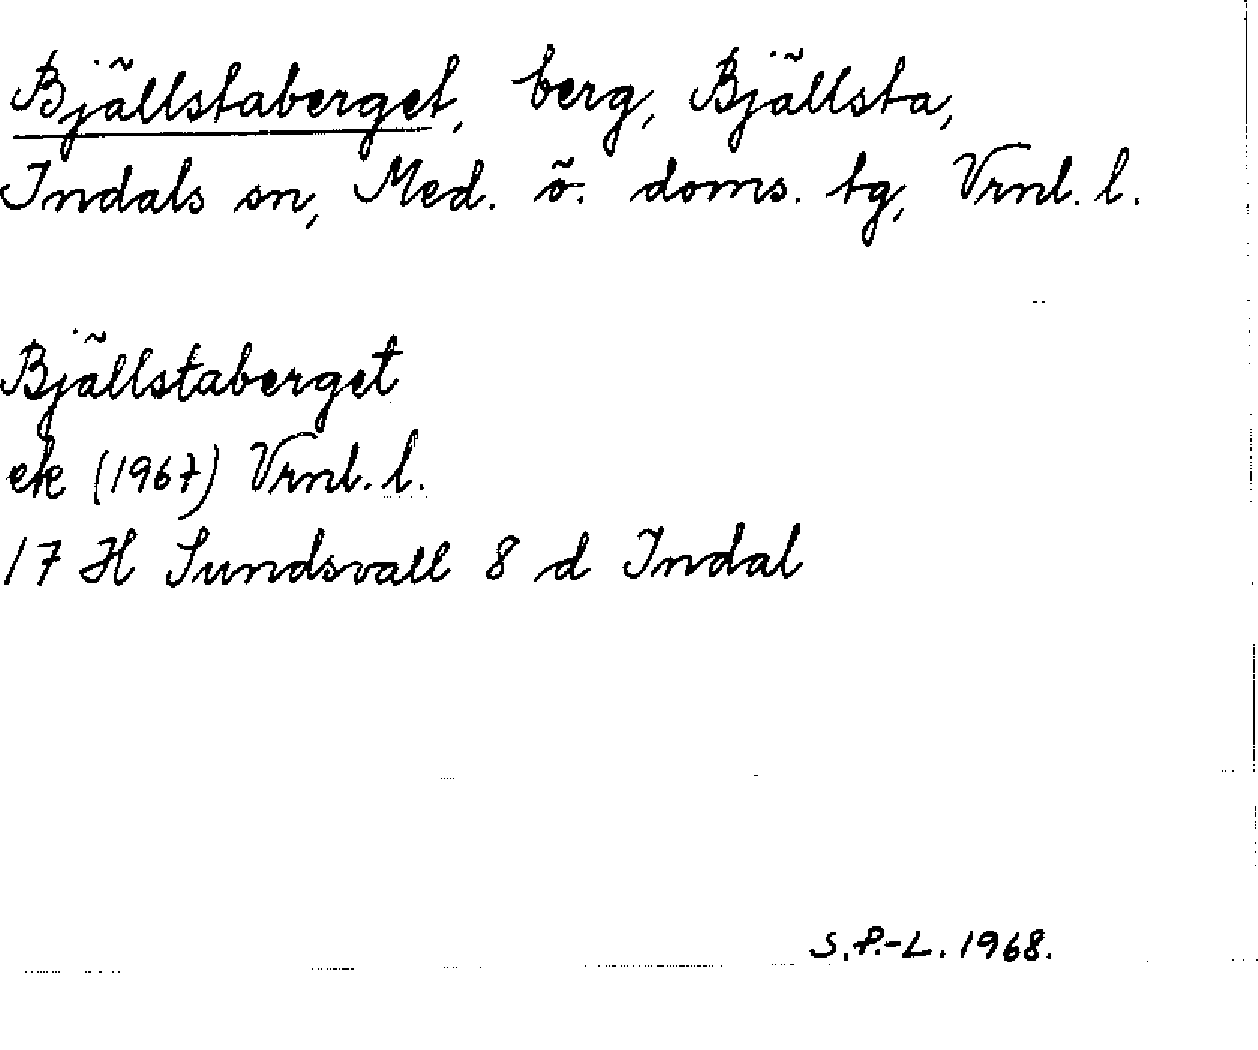 Bjällstaberget, berg, Bjällsta,
Indals sn, Med. ö. doms. tg, Vrnl. l.
Bjällstaberget
ek (1967) Vrnl. l.
17 H Sundsvall 8 d Indal
S.P.-L. 1968.